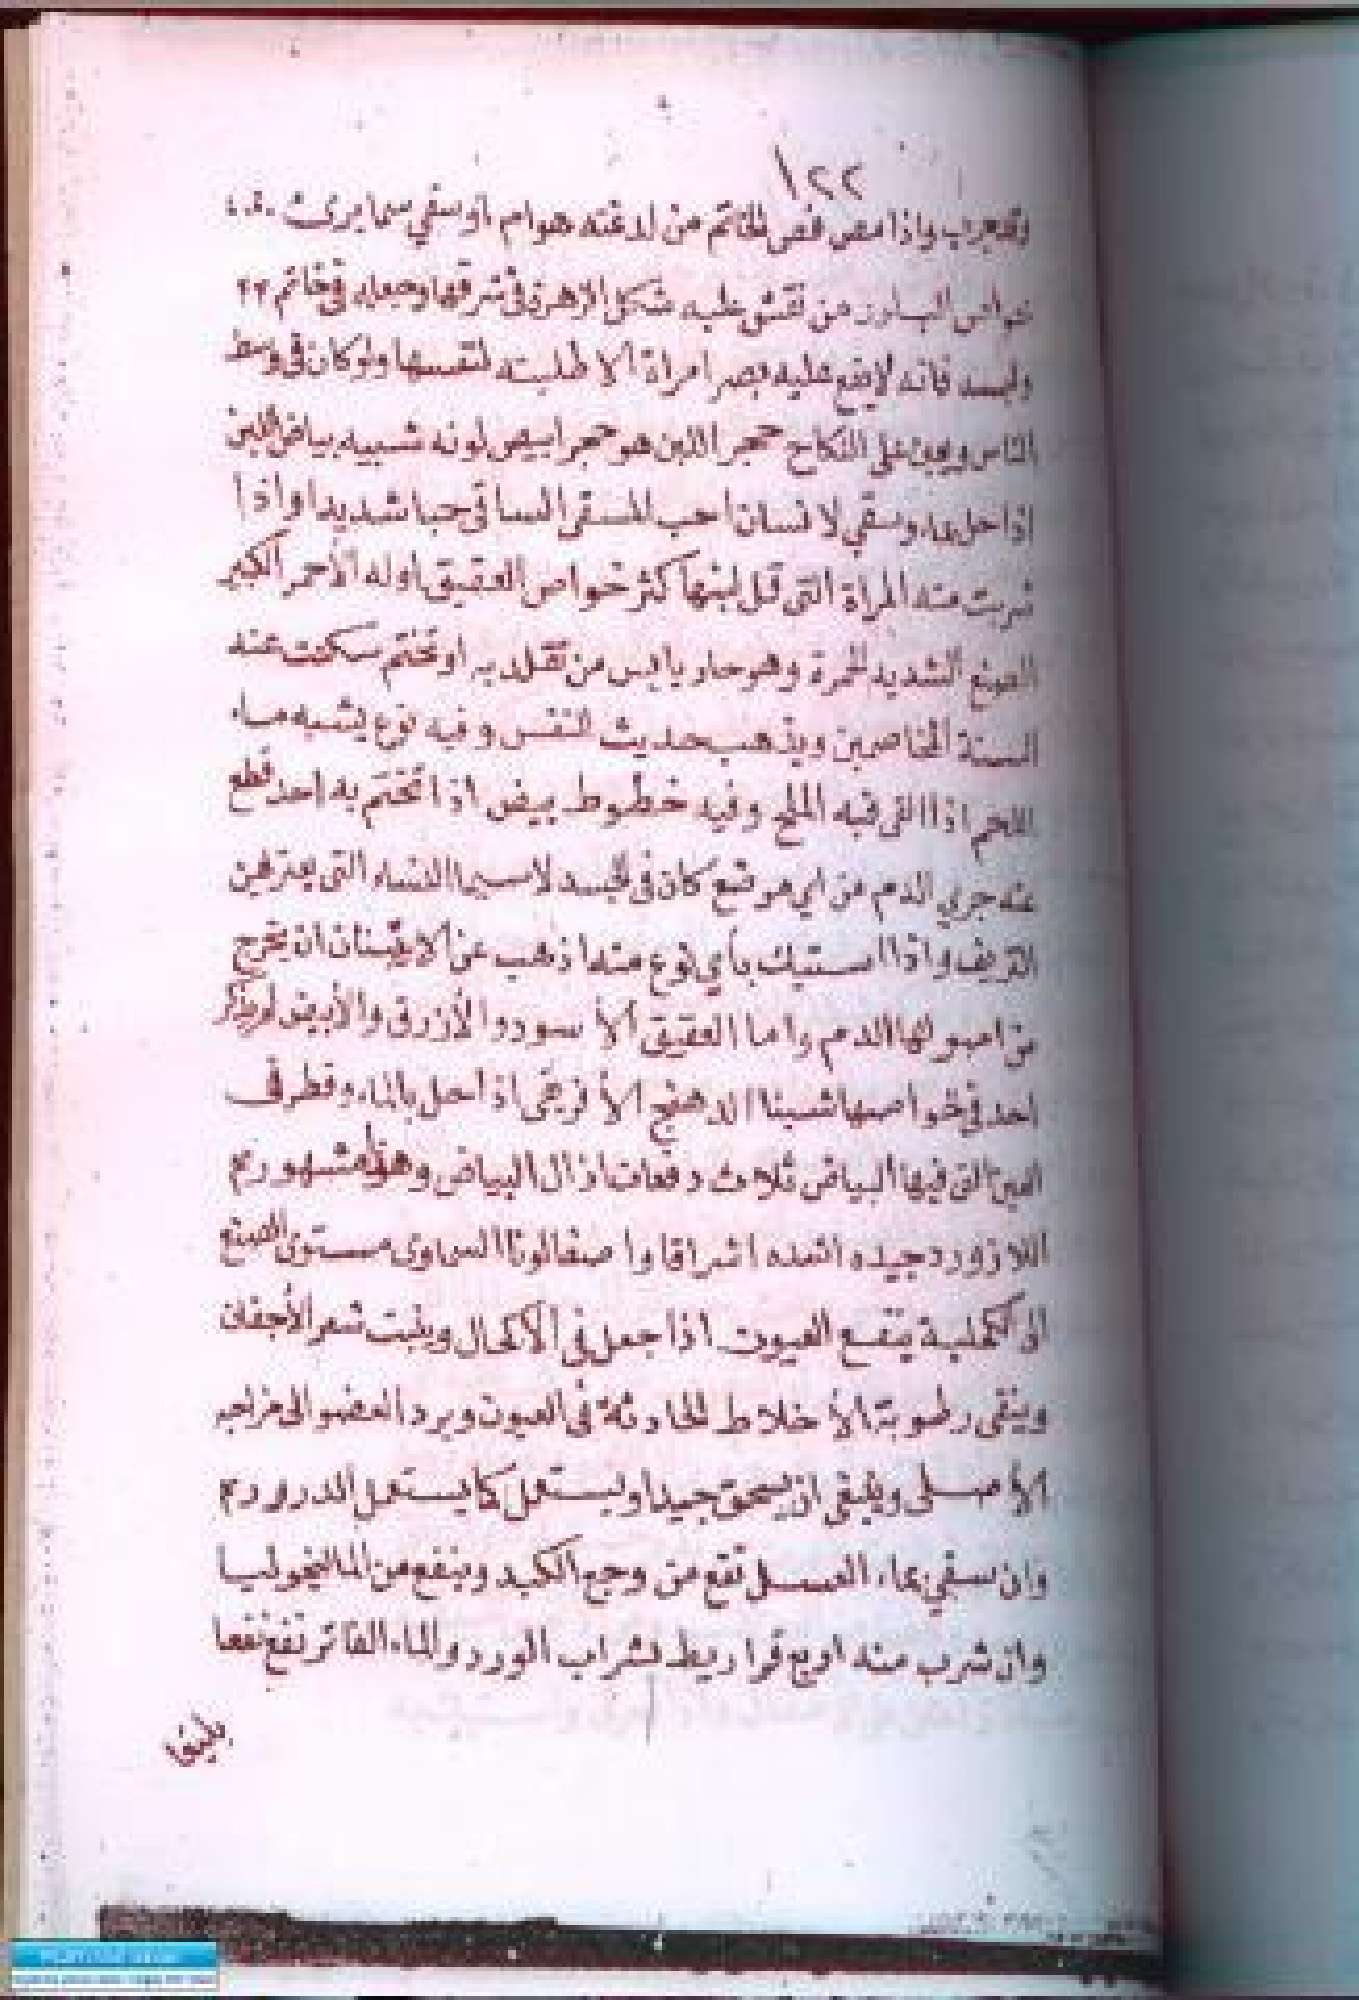 ١٢٢
وقد جرب واذا مص فص الخاتم من لدغته هوام او سقي سما يرئ
خواص البلور من نقش عليه شكل الزهرة في شرفها وجعله في خاتم
ولبسه فانه لا يقع عليه بصر امراة الا طلبته لنفسها ولو كان في وسط
الناس ويعين على النكاح حجر اللبن هو حجر ابيض لونه شبيه بياض اللبن
اذا حل بماء وسقي لانسان احب المستقى الساقي حبا شديدا واذا
شربت منه المراة التي قل لبنها كثر خواص العقيق اوله الأحمر الكبير
الصبغ الشديد الحمرة وهو حار يابس من تقلد به او تختم سكنت عنه
السنة المخاصمين ويذهب حديث النفس وفيه نوع يشبه ماء
اللحم اذا القى فيه الملح وفيه خطوط بيض اذا تختم به احد قطع
عنه جري الدم من اي موضع كان في الجسد لاسيما النساء التي يعترهن
النزيف واذا استيك بأي نوع منه اذهب عن الاسنان ان يخرج
من اصولها الدم واما العقيق الأسود والأزرق والأبيض لم يذكر
احد في خواصها شيئا الدهنج الأفرنجى اذا حل بالماء وقطر في
العين التي فيها البياض ثلاث دفعات ازال البياض وهو مشهور
اللازورد جيده اشده اشراقا واصفا لونا السماوى مستوى الصبغ
الى الكحلية ينفع العيون اذا جعل في الاكحال وينبت شعر الأجفان
وينقى رطوبة الأخلاط الحادثة في العيون ويرد العضو الى مزاجه
الأصلى وينبغى ان يسحق جيدا ويستعمل كما يستعمل الدرور
وان سقي بماء العسل نفع من وجع الكبد وينفع من الماليخوليا
وان شرب منه اربع قراريط بشراب الورد والماء الفاتر نفع نفعا
بليغا